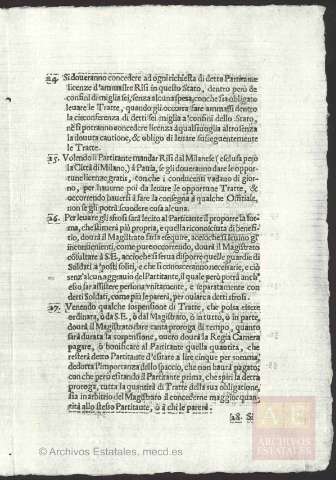 24. Si doueranno concedere ad ogni richiesta di detto Partitante
licenze d'ammassare Risi in questo Stato, dentro però de
confini di miglia sei, senza alcuna spesa, con che sia obligato
leuare le Tratte, quando gli occorra fare ammassi dentro
la circonferenza di detti sei miglia a' confini dello Stato,
nè si potranno concedere licenza à qualsiuoglia altro senza
la douuta cautione, & obligo di leuare susseguentemente
le Tratte.
25. Volendo il Partitante mandar Risi dal Milanese (esclusa però
la Città di Milano,) à Pauia, se gli doueranno dare le oppor-
tune licenze gratis, con che i conducenti vadano di gior-
no, per hauerne poi da leuare le opportune Tratte, &
occorrendo hauersi à fare la consegna à qualche Offitiale,
non se gli potrà scuodere cosa alcuna.
26. Per leuare gli sfrosi sarà lecito al Partitante il proporre la for-
ma, che stimerà più propria, e quella riconosciuta di benefi-
tio, dourà il Magistrato farla esequire, accioche si leuino gli
inconuenienti, come pure occorrendo, dourà il Magistrato
cõsultare à S.E., accioche si serua disporre quelle guardie di
Soldati a' posti soliti, e che si conosceranno necessarie, e ciò
senz'alcun aggrauio del Partitante, il quale però potrà anch'
esso far assistere persona vnitamente, e separatamente con
detti Soldati, come più le parerà, per ouiar ca detti sfrosi.
27. Venendo qualche sospensione di Tratte, che possa essere
ordinata, ò da S.E., ò dal Magistrato, ò in tutto, ò in parte,
dourà il Magistrato dare tanta proroga di tempo, quanto
sarà durata la sospensione, ouero dourà la Regia Camera
pagare, ò bonificare al Partitante quella quantità, che
resterà detto Partitante d'esitare a lire cinque per somma,
dedotta l'importanza dello spaccio, che non haurà pagato;
con che però esitando il Partitante prima, che spiri la detta
proroga, tutta la quantità di Tratte della sua obligatione,
sia in arbitrio del Magistrato il concederne maggior quan-
tità allo stesso Partitante, ò à chi le parerà.
28. Si
AE
ARCHIVOS
ESTATALES
© Archivos Estatales, mecd.es